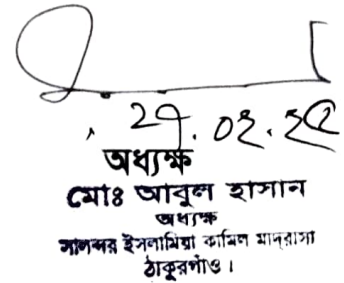 ২৭.০২.২৫
অধ্যক্ষ
মোঃ আবুল হাসান
অধ্যক্ষ
সালন্দর ইসলামিয়া কামিল মাদ্‌রাসা
ঠাকুরগাঁও।